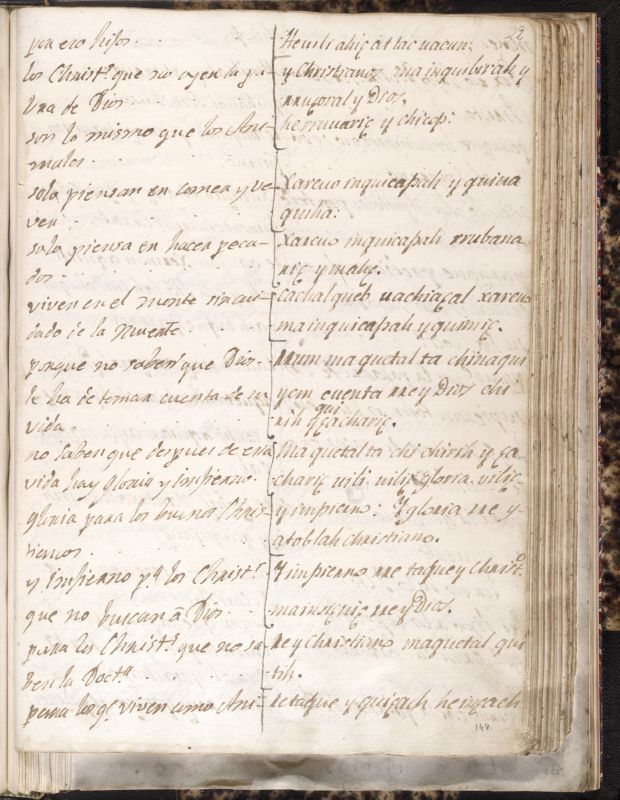 23
pues hijos.
los Christ.s que no oyen la pa-
labra de Dios
son lo mismo que los Ani-
males.
solo piensan en comer y be-
ver.
solo piensa en hacer peca-
dos.
viven en el monte sin cui-
dado de la Muerte
porque no saben que Dios
le ha de tomar cuenta de su
vida
no saben que despues de esta
vida hay Gloria y Infierno.
gloria para los buenos Chris-
tianos.
y Infierno p.a los Christ.s
que no buscan â Dios.
para los Christ.s que no sa-
ben la Doct.a
para los q.e viven como Ani-
y Christiano mainquibirah y
y Dios,
Xarcuo inquicapah y quina
quiha:
Xarcuo inquicapah rrubana
cachalqueb uachiaçal xarcuo
mainquicapah y quimic.
Mum maquetal ta chinaqui
y em cuenta rre y Dios chi
qui
Maquetal ta chi chirih y ca
charic uili uilic gloria uilic
y impierno: y gloria rre y
atoblah christiano.
Y impierno rre taque y Christ.o
mainquiquic rre y Dios.
rre y Christiano maquetal qui
tih.
retaque y quiçach he içach
148